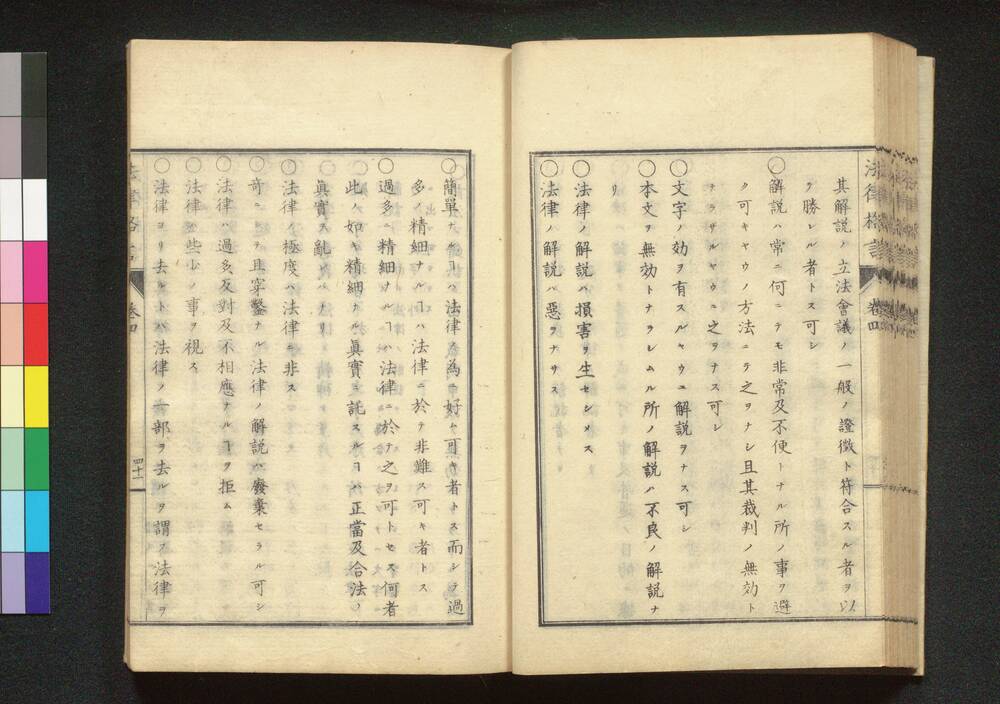 法律格言
卷四
其解説ノ立法會議ノ一般ノ證徴ト符合スル者ヲ以
テ勝レル者トス可シ
〇解説ハ常ニ何ニテモ非常及不便トナル所ノ事ヲ避
ク可キヤウノ方法ニテ之ヲナシ且其裁判ノ無効ト
ナラザルヤウニ之ヲナス可シ
〇文字ノ効ヲ有スルヤウニ解説ヲナス可シ
〇本文ヲ無効トナラシムル所ノ解説ハ不良ノ解説ナ
リ
〇法律ノ解説ハ損害ヲ生セシメス
〇法律ノ解説ハ惡ヲナサス
〇簡單ナルヿハ法律ノ為ニ好ム可キ者トス而シテ過
多ノ精細ナルヿハ法律ニ於テ非難ス可キ者トス
〇過多ニ精細ナルヿハ法律ニ於テ之ヲ可トセス何者
此ノ如キ精細ナル眞實ニ託スルヿハ正當及合法ノ
眞實ヲ亂ルヿハナリ
〇法律ノ極度ハ法律ニ非ス
〇奇ニシテ且穿鑿ナル法律ノ解説ハ廢棄セラル可シ
〇法律ハ過多反對及不相應ナルヿヲ拒ム
〇法律ハ些少ノ事ヲ視ス
〇法律ヨリ去ルトハ法律ノ一部ヲ去ルヲ謂フ法律ヲ
卷四
四十一